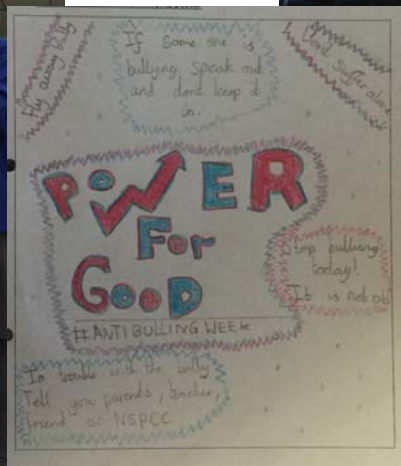 Fly away bully
If some one is
bullying speak out
and dont keep it
in.
Dont suffer alone
POWER
For
GOOD
#ANTIBULLING WEEK
Stop bullying
today!
It is not ok
In trouble with the bully
Tell you parents, teacher,
friend or NSPCC